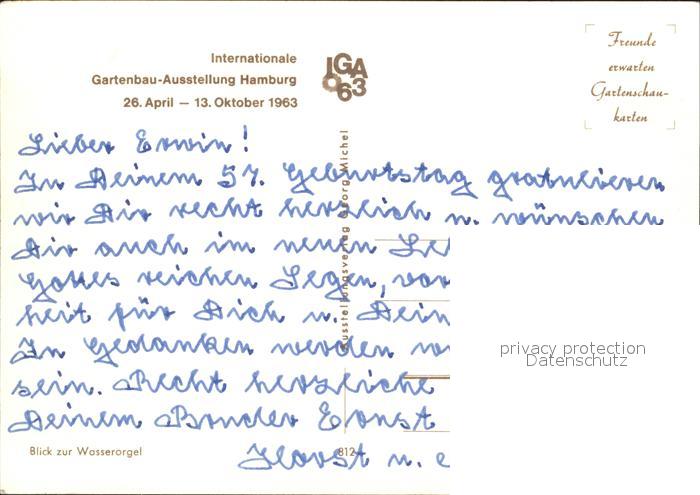 Internationale
Gartenbau-Ausstellung Hamburg
26. April — 13. Oktober 1963
IGA
63
Freunde
erwarten
Gartenschau-
karten
Lieber Erwin!
Zu Deinem 57. Geburtstag gratulieren
wir Dir recht herzlich u. wünschen
Dir auch im neuen
Gottes reichen Segen,
heit für Dich u.
In Gedanken werden
sein. Recht herzliche
Deinem Bruder Ernst
Horst u.
Ausstellungsverlag Georg Michel
Blick zur Wasserorgel
812
privacy protection
Datenschutz